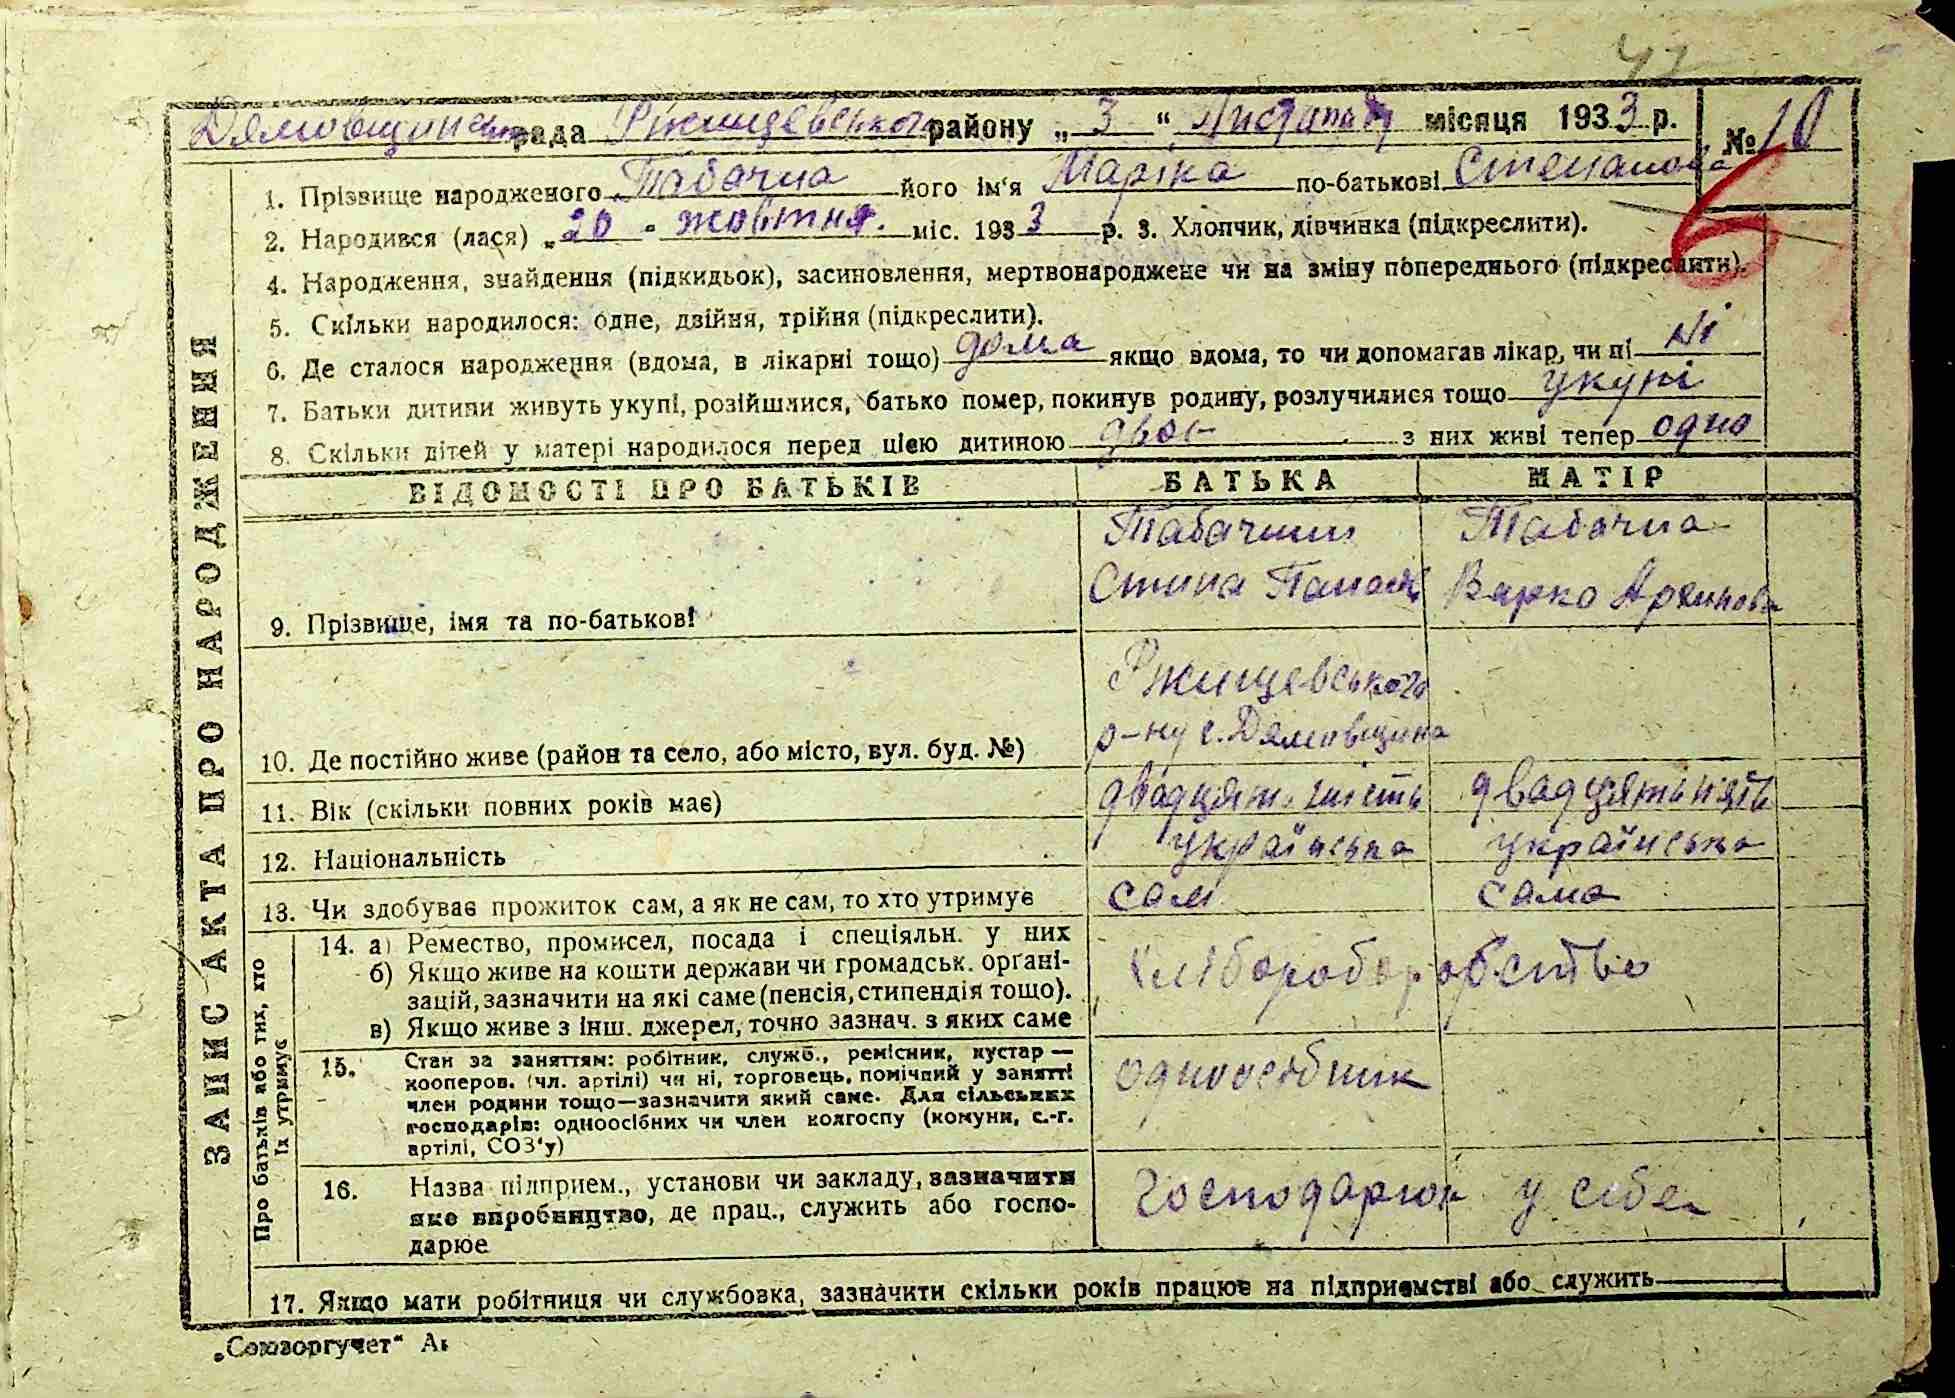 47
Дямовщинська рада Ржищевського району „ 3 “ Листопад місяця 1933 р. № 10
1. Прізвище народженого Табачна його ім‘я Маріка по-батькові Степанова
6
2. Народився (лася) „ 20 “ жовтня. міс. 1933 р. 3. Хлопчик, дівчинка (підкреслити).
4. Народження, знайдення (підкидьок), засиновлення, мертвонароджене чи на зміну попереднього (підкреслити).
5. Скільки народилося: одне, двійня, трійня (підкреслити).
6. Де сталося народження (вдома, в лікарні тощо) дома якщо вдома, то чи допомагав лікар, чи ні Ні
7. Батьки дитини живуть укупі, розійшлися, батько помер, покинув родину, розлучилися тощо укупі
8. Скільки дітей у матері народилося перед цією дитиною двоє з них живі тепер одно
ВІДОМОСТІ ПРО БАТЬКІВ БАТЬКА МАТІР
Табачний Табачна
Степан Панасів Варка Архипова
9. Прізвище, імя та по-батькові
Ржищевського
р-ну с. Дямовщина
10. Де постійно живе (район та село, або місто, вул. буд. №)
11. Вік (скільки повних років має) двадцять шість двадцять пять
12. Національність українська українська
13. Чи здобуває прожиток сам, а як не сам, то хто утримує сам сама
14. а) Ремество, промисел, посада і спеціяльн. у них
б) Якщо живе на кошти держави чи громадськ. орґані-
зацій, зазначити на які саме (пенсія, стипендія тощо).
в) Якщо живе з інш. джерел, точно зазнач. з яких саме
15. Стан за заняттям: робітник, служб., ремісник, кустар —
кооперов. (чл. артілі) чи ні, торговець, помічний у занятті
член родини тощо—зазначити який саме. Для сільських
господарів: одноосібних чи член колгоспу (комуни, с.-г.
артілі, СОЗ‘у)
одноосібник
16. Назва підприєм., установи чи закладу, зазначити
яке виробництво, де прац., служить або госпо-
дарює
господарює у себе
17. Якщо мати робітниця чи службовка, зазначити скільки років працює на підприємстві або служить
ЗАПИС АКТА ПРО НАРОДЖЕННЯ
Про батьків або тих, хто
їх утримує
„Союзоргучет“